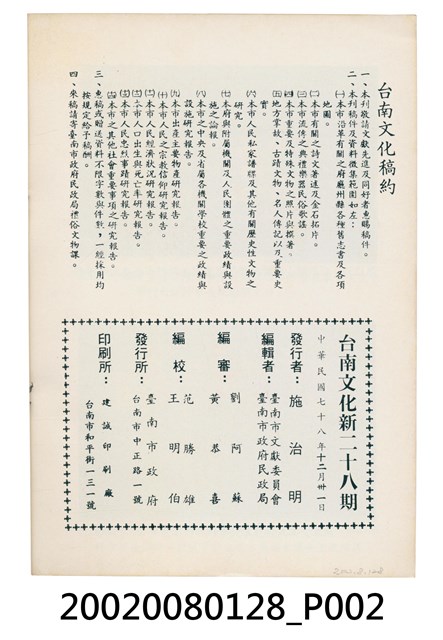 台南文化稿約
一、本刊敬請文獻先進及同好者惠賜稿件。
二、本刊稿件及資料徵集範圍如左：
㈠本市沿革有關之府廳州縣各種舊志書及各項
地圖。
㈡本市有關之詩文著述及金石拓片。
㈢本市流傳之典禮樂器民俗歌謠。
㈣本市重要及特殊文物之照片與撰著。
㈤地方掌故、古蹟文物、名人傳記以及重要史
實。
㈥本市人民私家譜牒及其他有關歷史性文物之
研究。
㈦本府與附屬機關及人民團體之重要政績與設
施之論報。
㈧本市之中央及省屬各機關學校重要之政績與
設施研究報告。
㈨本市出產主要物產研究報告。
㈩本市人民之宗教信仰研究報告。
本市人民經濟狀況研究報告。
本市人口出生與死亡率研究報告。
本市人民忠烈事蹟研究報告。
本市之其他社會重要事項之研究報告。
三、惠稿或贈送資料不限字數與件數，一經採用均
按規定給予稿酬。
四、來稿請寄臺南市政府民政局禮俗文物課。
台南文化新二十八期
中華民國七十八年十二月卅一日
發行者：施治明
編輯者：臺南市文獻委員會
臺南市政府民政局
編審：劉阿蘇
黃恭喜
編校：范勝雄
王明伯
發行所：臺南市政府
台南市中正路一號
印刷所：建誠印刷廠
台南市和平街一三一號
20020080128_P002